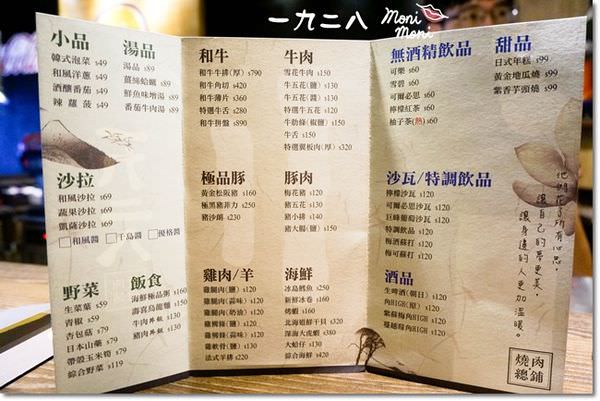 一九二八
Moni
Moni
小品
韓式泡菜 $49
和風洋蔥 $49
酒釀番茄 $49
辣蘿蔔 $49
湯品
湯品 $89
薑絲蛤蠣 $89
鮮魚味增湯 $89
番茄牛肉湯 $89
沙拉
和風沙拉 $69
蔬果沙拉 $69
凱薩沙拉 $69
□和風醬 □千島醬 □優格醬
野菜
生菜葉 $59
青椒 $59
杏包菇 $79
日本山藥 $79
帶殼玉米筍 $79
綜合野菜 $119
飯食
海鮮極品粥 $160
壽喜烏龍麵 $150
牛肉丼飯 $130
豬肉丼飯 $130
和牛
和牛牛排(厚) $790
和牛角切 $420
和牛薄片 $360
特選牛舌 $280
和牛拼盤 $890
牛肉
雪花牛肉 $150
牛五花(鹽) $130
牛五花(醬) $130
特選牛五花 $120
牛肋條(椒鹽) $150
牛舌 $150
特選翼板肉(厚) $320
極品豚
黃金松阪豬 $160
極黑豬菲力 $250
豬沙朗 $230
豚肉
梅花豬 $120
豬五花 $120
豬小排 $140
豬大腸(鹽) $130
雞肉/羊
雞腿肉(鹽) $120
雞腿肉(蒜味) $120
雞腿肉(奶油) $120
雞翅(鹽) $120
雞翅(蒜味) $130
雞軟骨(鹽) $130
法式羊排 $220
海鮮
冰島鱈魚 $250
新鮮冰卷 $160
烤蝦 $160
北海道鮮干貝 $320
深海大虎蝦 $380
大蛤仔 $150
綜合海鮮 $420
無酒精飲品
可樂 $60
雪碧 $60
可爾必思 $60
檸檬紅茶 $60
柚子茶(熱) $60
甜品
日式年糕 $99
黃金地瓜燒 $99
紫香芋頭燒 $99
沙瓦/特調飲品
檸檬沙瓦 $120
可爾必思沙瓦 $120
巨峰葡萄沙瓦 $120
特調飲品 $120
梅酒蘇打 $120
梅可蘇打 $120
酒品
生啤酒(朝日) $120
角HIGH(原) $120
紫蘇梅角HIGH $120
蔓越莓角HIGH $120
讓自己的夢更美，
讓身邊的人更加溫暖。
燒肉
總鋪